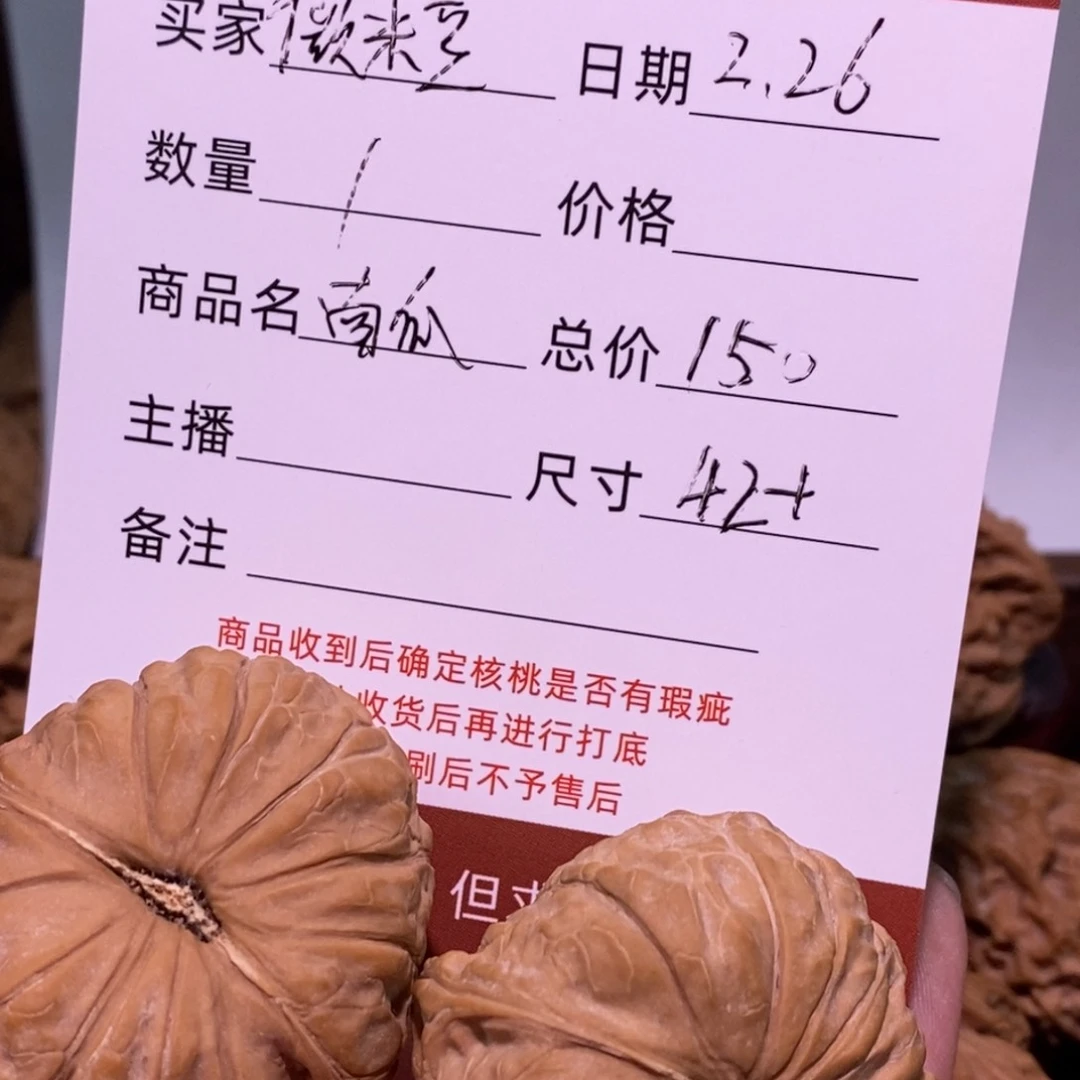 买家 微米兰 日期 2.26
数量 1 价格
商品名 南瓜 总价 150
主播 尺寸 42+
备注
商品收到后确定核桃是否有瑕疵
收货后再进行打底
刷后不予售后
但求